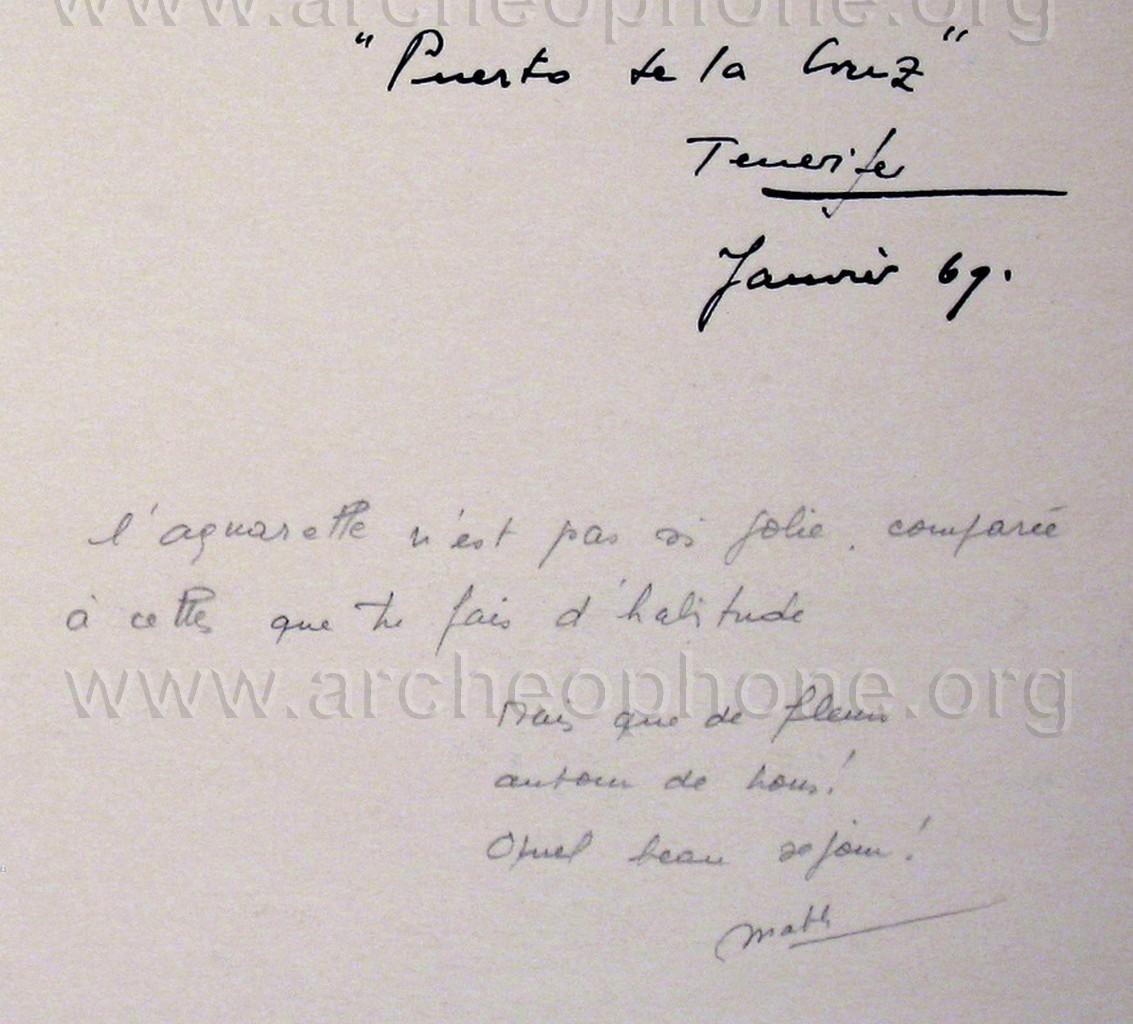 www.archeophone.org
"Puerto de la Cruz"
Tenerife
Janvier 69.
l'aquarelle n'est pas si jolie, comparée
à celles que tu fais d'habitude
www.archeophone.org
Mais que de fleurs
autour de nous!
Quel beau séjour!